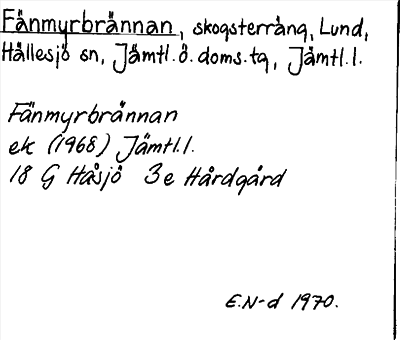 Fänmyrbrännan, skogsterräng, Lund,
Hällesjö sn, Jämtl.ö.doms.tg, Jämtl.l.
Fänmyrbrännan
ek (1968) Jämtl.l.
18 G Håsjö 3e Hårdgård
E.N-d 1970.